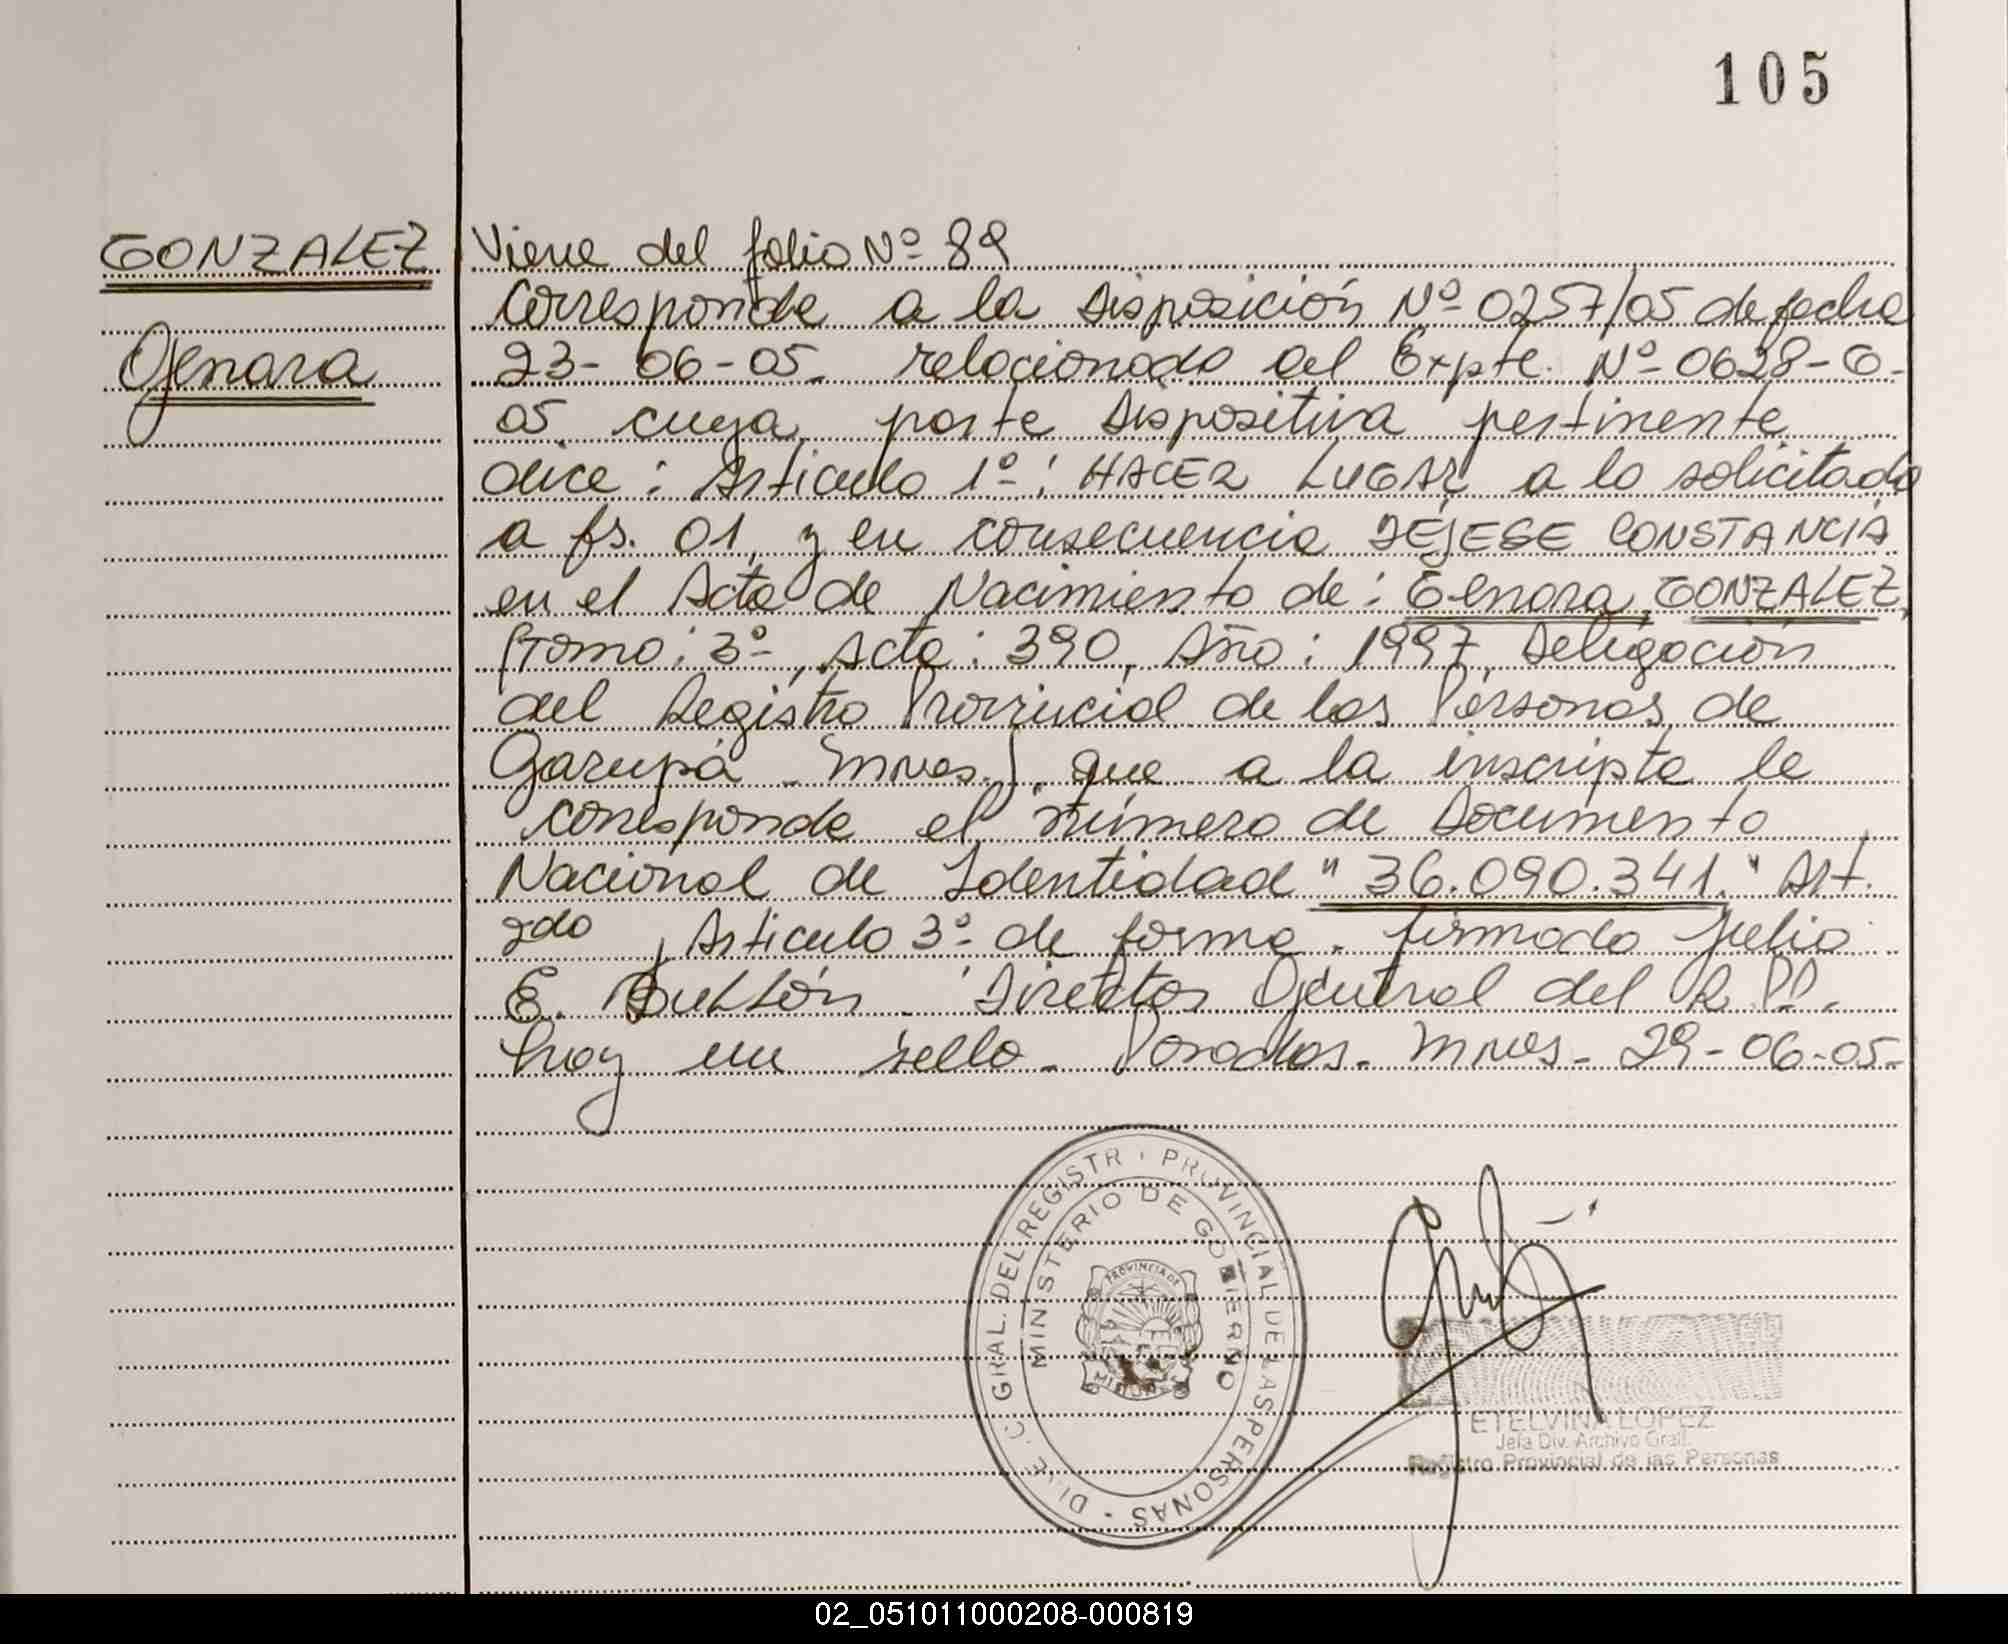 105
GONZALEZ
Genara
Viene del folio Nº 89
Corresponde a la Disposición Nº 0257/05 de fecha
23-06-05. relacionada al Expte. Nº 0628-G-
05. cuya parte Dispositiva pertinente
dice: Artículo 1º: HACER LUGAR a lo solicitado
a fs. 01, y en consecuencia DÉJESE CONSTANCIA
en el Acta de Nacimiento de: Genara GONZALEZ,
Tomo: 3º, Acta: 390, Año: 1997, Delegación
del Registro Provincial de las Personas de
Garupá - Mnes. que a la inscripta le
corresponde el número de Documento
Nacional de Identidad "36.090.341." Art.
2do, Artículo 3º de forma. firmado Julio
E. Director General del R.P.P.
hay un sello. Posadas. Mnes. 29-06-05-
DIREC. GRAL. DEL REGISTR PROVINCIAL DE LAS PERSONAS
MINISTERIO DE GOBIERNO
PROVINCIA DE
ETELVINA LOPEZ
Jefa Div. Archivo Gral.
Registro Provincial de las Personas
02_051011000208-000819